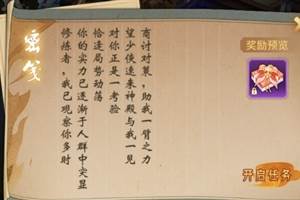 密笺
修炼者，我已观察你多时
你的实力已逐渐于人群中突显
恰逢局势动荡
对你正是一考验
望少侠速来神殿与我一见
商讨对策，助我一臂之力
奖励预览
开启任务